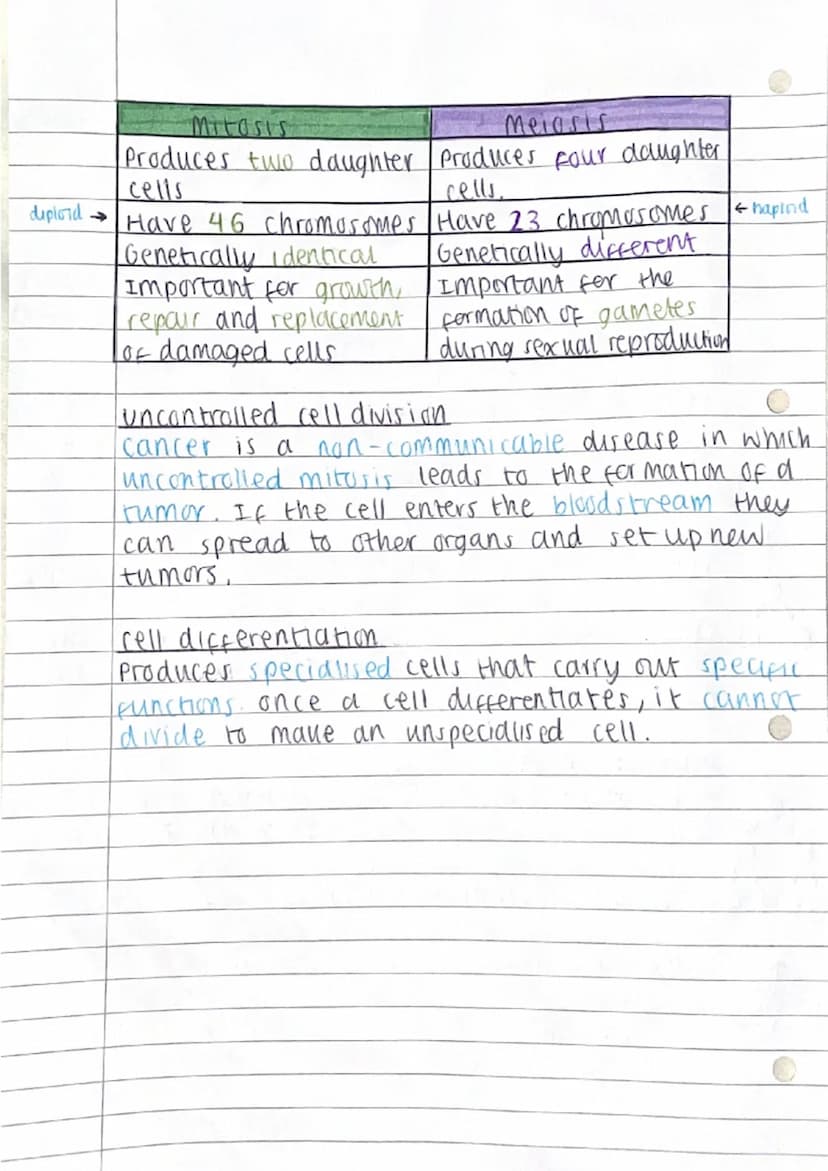 Mitosis
Meiosis
Produces two daughter
cells
Produces four daughter
cells.
diploid →
Have 46 chromosomes
Have 23 chromosomes
← haploid
Genetically identical
Genetically different
Important for growth,
repair and replacement
of damaged cells
Important for the
formation of gametes
during sexual reproduction
uncontrolled cell division
cancer is a non-communicable disease in which
uncontrolled mitosis leads to the formation of a
tumor. If the cell enters the bloodstream they
can spread to other organs and set up new
tumors.
cell differentiation
Produces specialised cells that carry out specific
functions. once a cell differentiates, it cannot
divide to make an unspecialised cell.